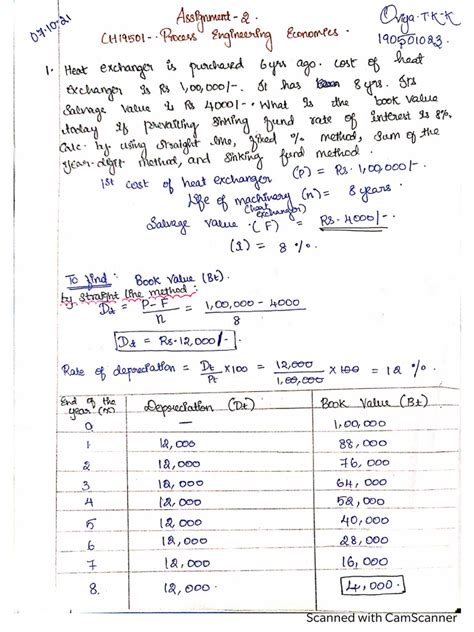 07.10.21
Assignment-2.
Oviya.T.K.K
CH19501-. Process Engineering Economics.
190501083.
1. Heat exchanger is purchased 6 yrs ago. cost of heat
exchanger is Rs 1,00,000/-. It has 8 yrs. Its
Salvage Value is Rs 4000/-. What is the book value
today if prevailing sinking fund rate of interest is 8%.
Calc. by using straight line, fixed % method, sum of the
year-digit method, and sinking fund method.
1st cost of heat exchanger (P) = Rs. 1,00,000/-
Life of machinery (n) = 8 years
(heat exchanger)
Salvage value (F) = Rs. 4000/-.
(i) = 8 %.
To find: Book Value (Bt).
by straight line method:
Dt = P-F / n = 1,00,000 - 4000 / 8
Dt = Rs. 12,000/-
Rate of depreciation = Dt / Pt x100 = 12,000 / 1,00,000 x 100 = 12 %.
End of the year (n) Depreciation (Dt) Book Value (Bt)
0 — 1,00,000
1 12,000 88,000
2 12,000 76,000
3 12,000 64,000
4 12,000 52,000
5 12,000 40,000
6 12,000 28,000
7 12,000 16,000
8. 12,000 4,000
Scanned with CamScanner